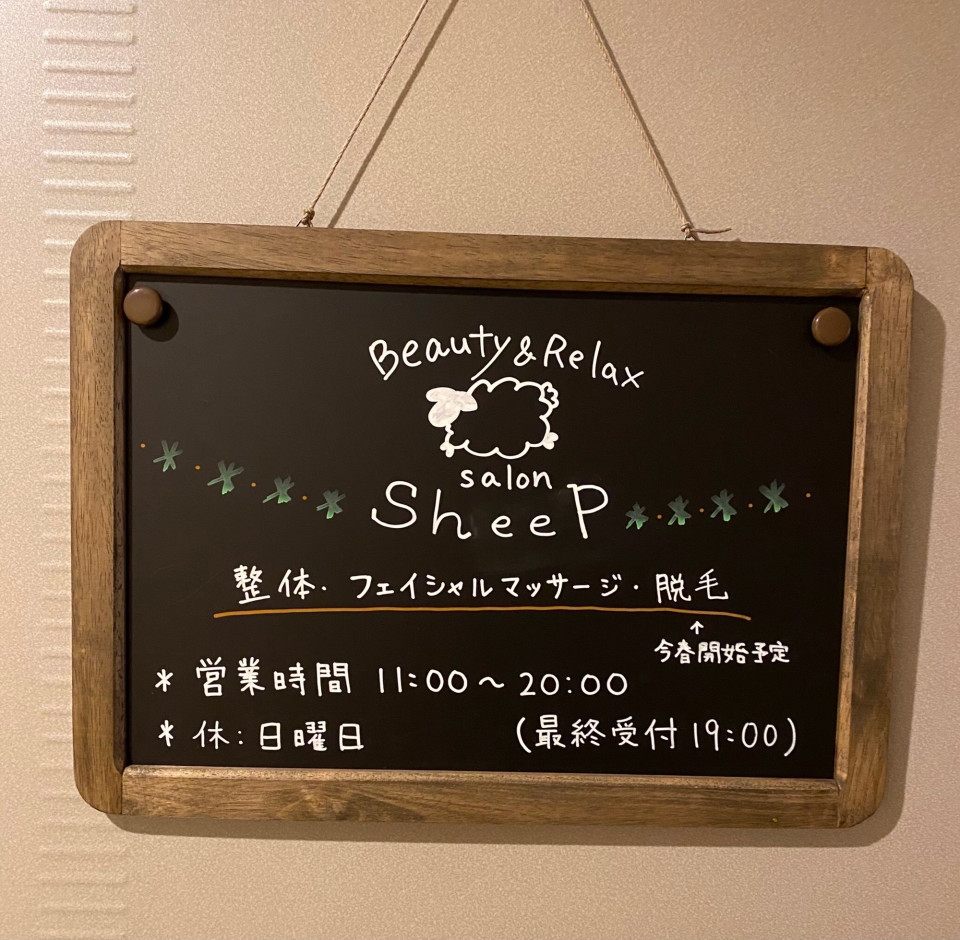 Beauty & Relax
salon
SheeP
整体・フェイシャルマッサージ・脱毛
↑
今春開始予定
* 営業時間 11:00～20:00
* 休:日曜日 (最終受付 19:00)